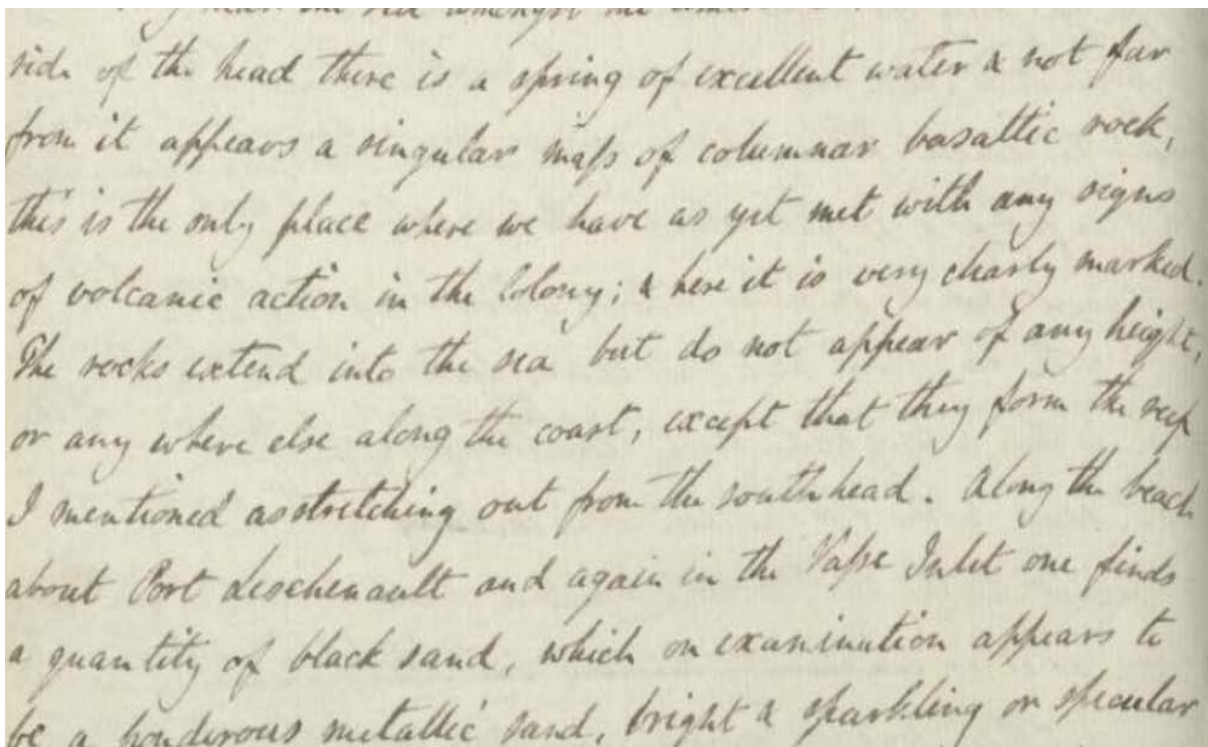 side of the head there is a spring of excellent water & not far
from it appears a singular maſs of columnar basaltic rock,
this is the only place where we have as yet met with any signs
of volcanic action in the Colony; & here it is very clearly marked.
The rocks extend into the sea but do not appear of any height,
or any where else along the coast, except that they form the reef
I mentioned as stretching out from the south head. Along the beach
about Port Leschenault and again in the Vaſse Inlet one finds
a quantity of black sand, which on examination appears to
be a ponderous metallic sand, bright & sparkling or specular